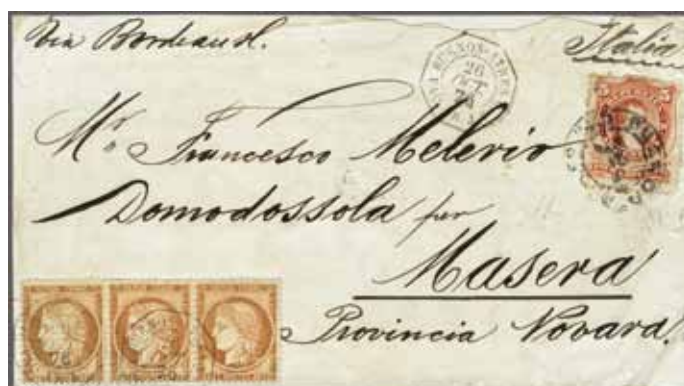 Via Bordeaux. Italia
BUENOS-AYRES
26
OCT
5
Mr. Francesco Melerio
Domodossola per
Masera
Provincia Novara.